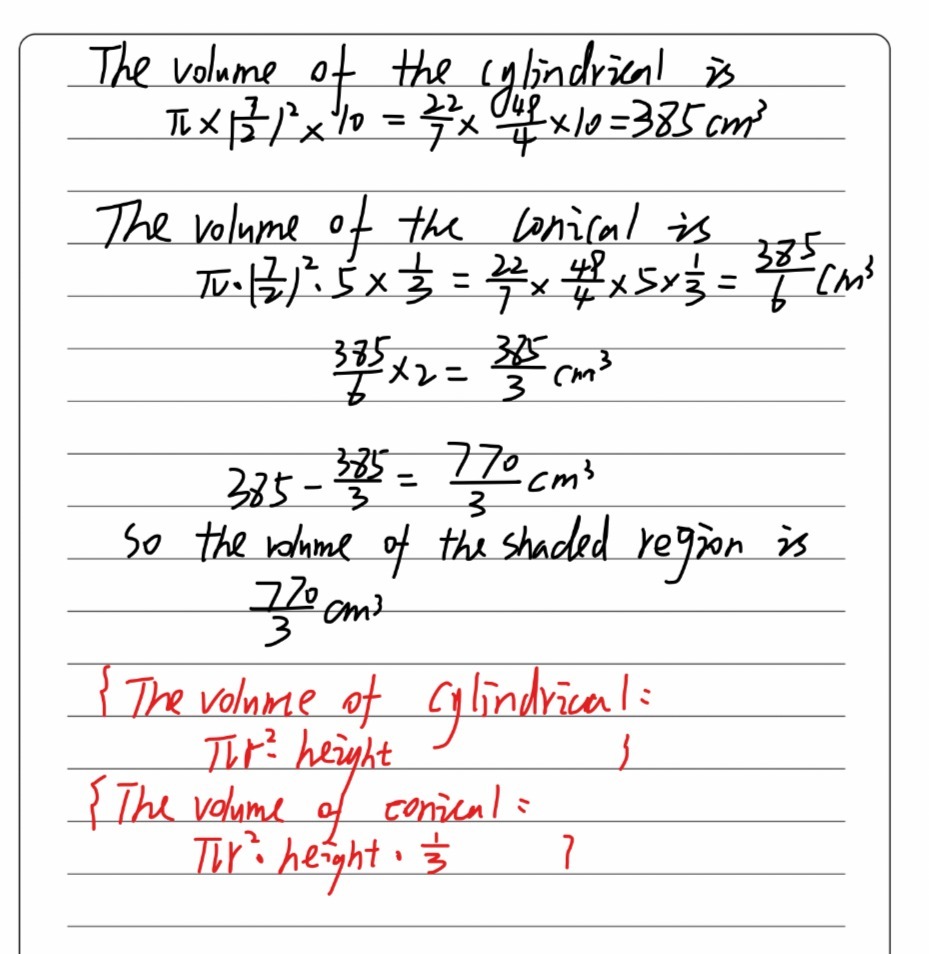 The volume of the cylindrical is
π × (7/2)² × 10 = 22/7 × 49/4 × 10 = 385 cm³
The volume of the conical is
π · (7/2)² · 5 × 1/3 = 22/7 × 49/4 × 5 × 1/3 = 385/6 cm³
385/6 × 2 = 385/3 cm³
385 - 385/3 = 770/3 cm³
So the volume of the shaded region is
770/3 cm³
{ The volume of cylindrical :
πr² · height }
{ The volume of conical :
πr² · height · 1/3 }